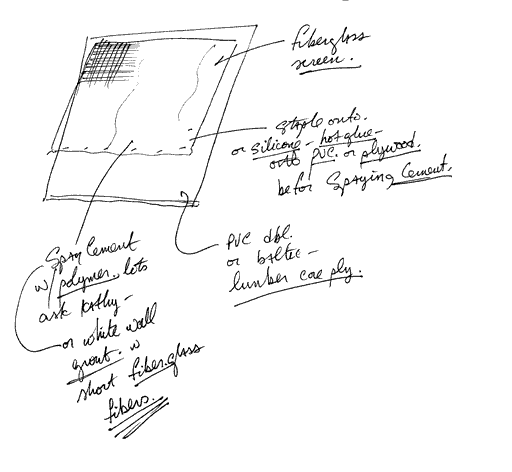 fiberglass
screen.
staple onto.
or silicone - hot glue -
onto PVC. or plywood.
befor Spraying Cement.
PVC dbl.
or baltec -
lumber core ply.
Spray Cement
w/ polymer. lots
ask Kathy -
or white wall
grout. w
short fiber.glass
fibers.